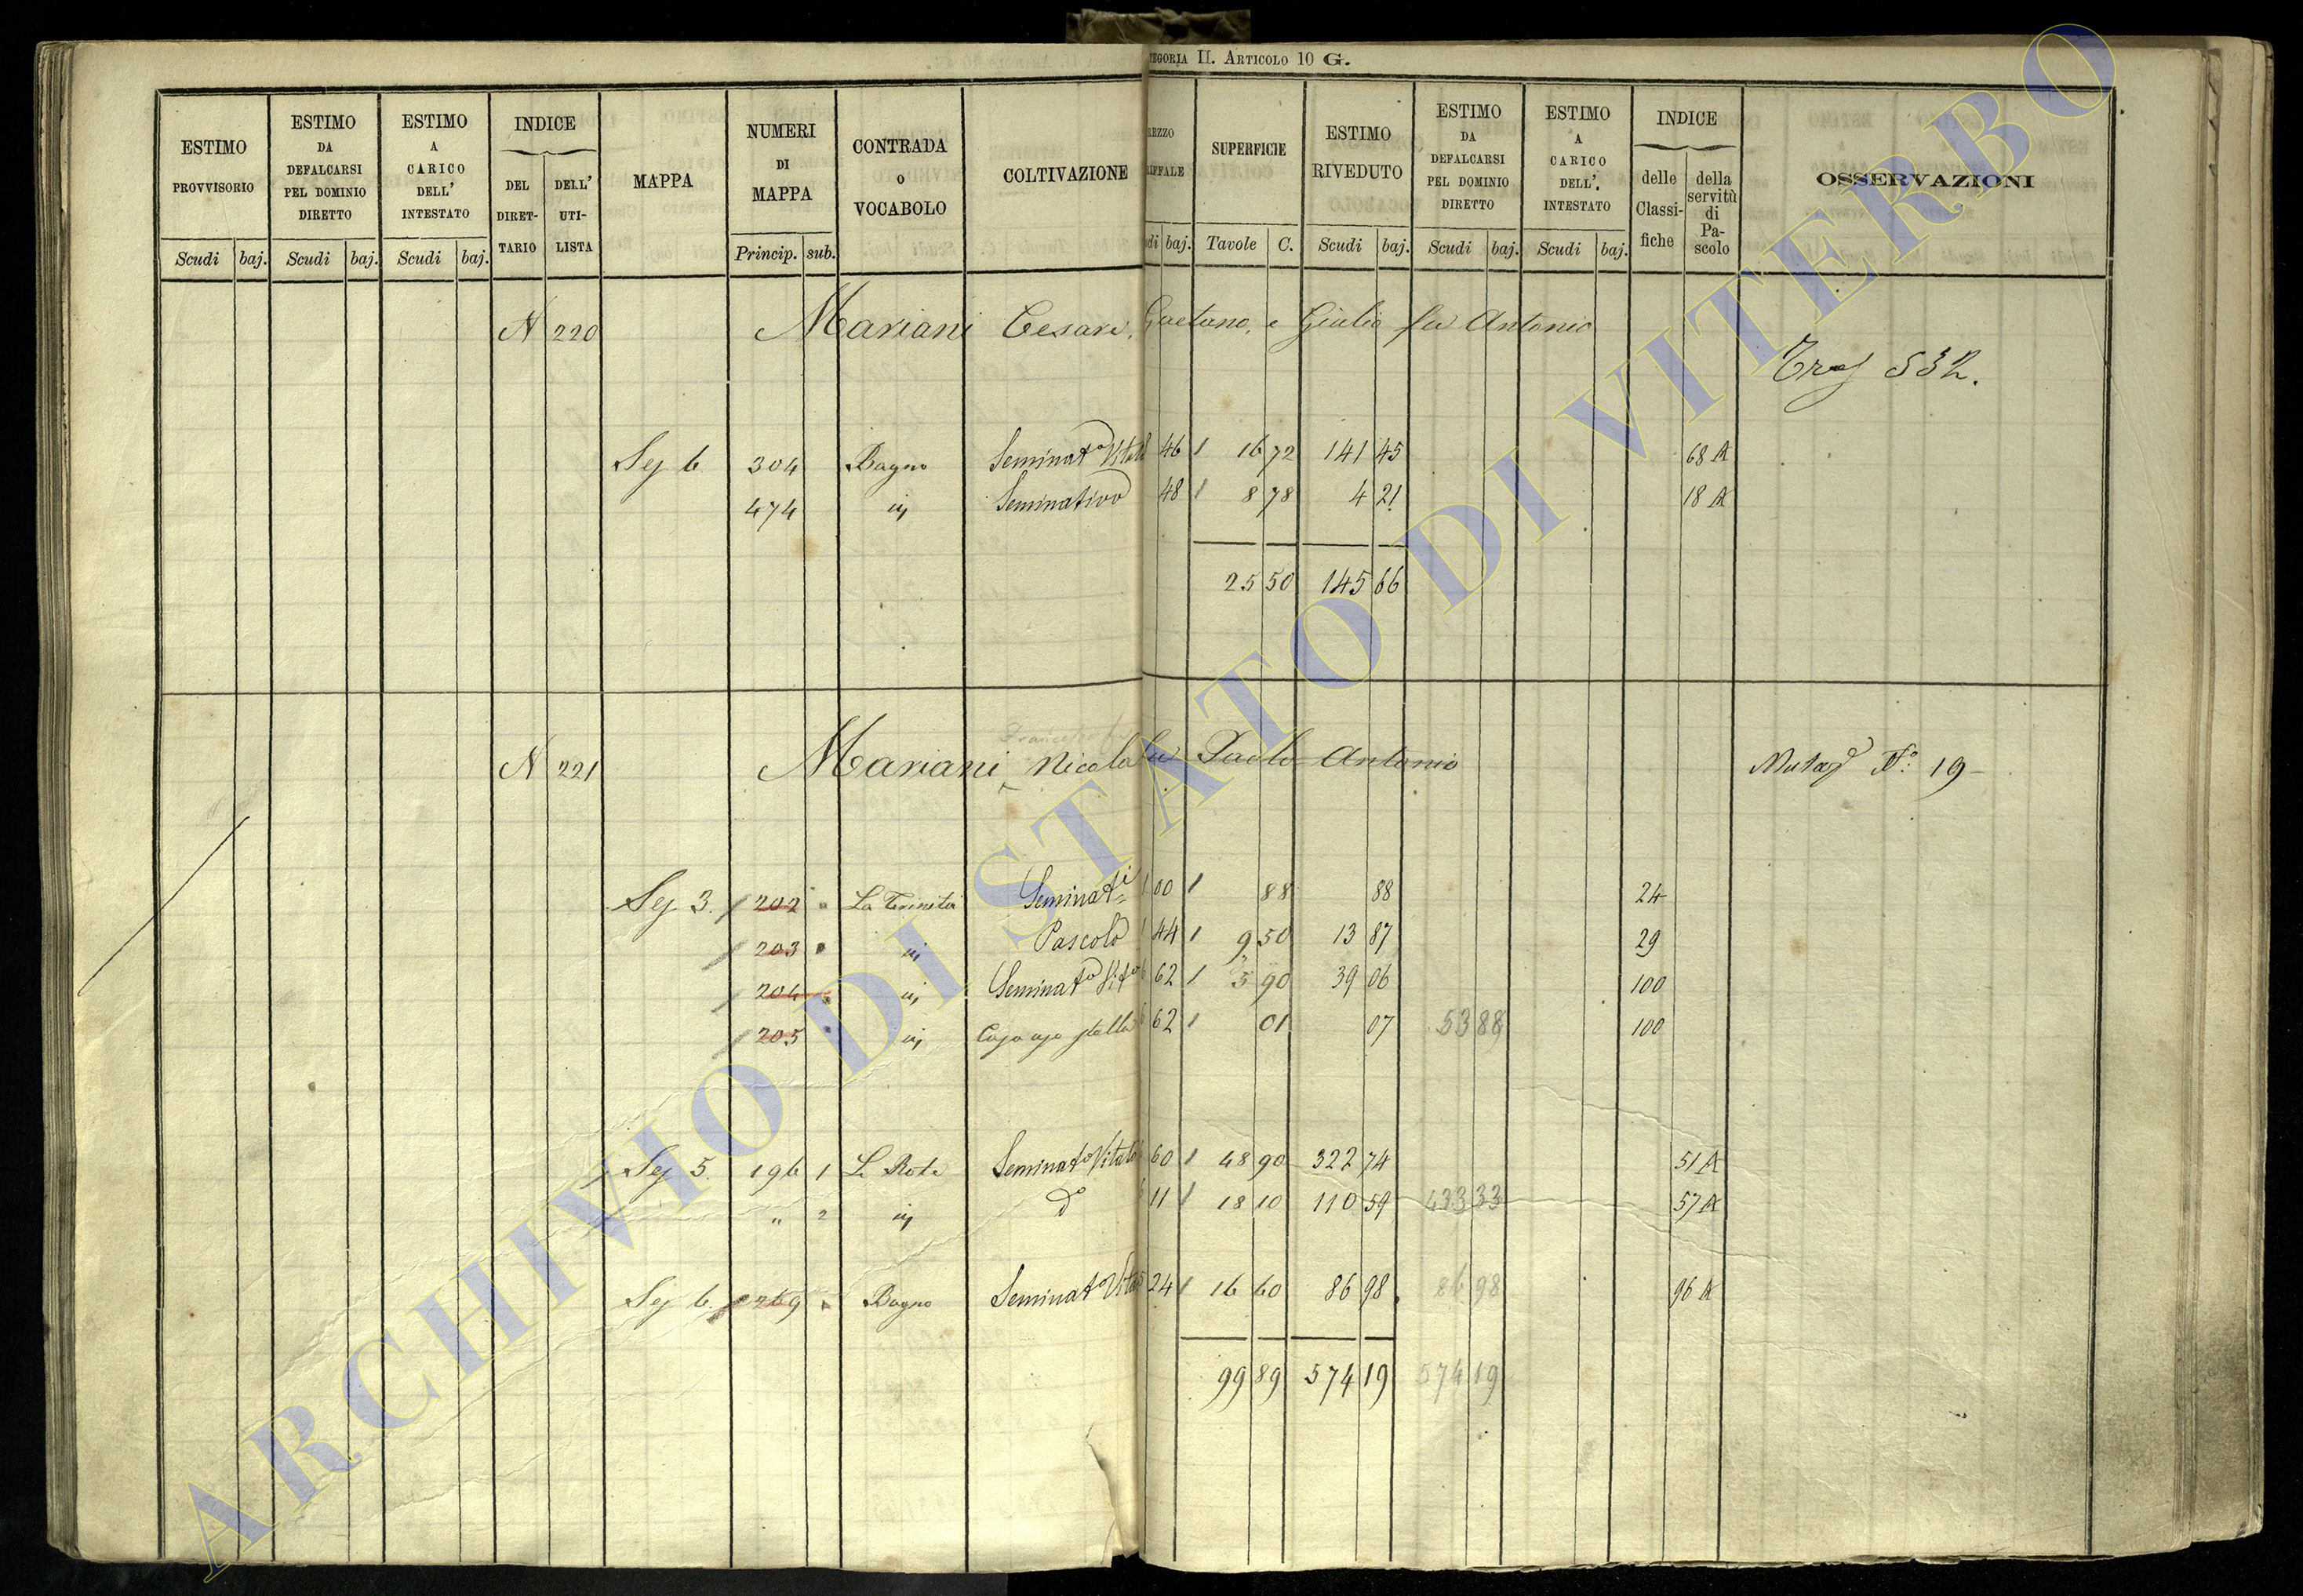 EGORIA II. ARTICOLO 10 G.
ESTIMO PROVVISORIO Scudi baj.
ESTIMO DA DEFALCARSI PEL DOMINIO DIRETTO Scudi baj.
ESTIMO A CARICO DELL' INTESTATO Scudi baj.
INDICE DEL DIRET-TARIO DELL' UTI-LISTA
MAPPA
NUMERI DI MAPPA Princip. sub.
CONTRADA O VOCABOLO
COLTIVAZIONE
REZZO RIFFALE di baj.
SUPERFICIE Tavole C.
ESTIMO RIVEDUTO Scudi baj.
ESTIMO DA DEFALCARSI PEL DOMINIO DIRETTO Scudi baj.
ESTIMO A CARICO DELL' INTESTATO Scudi baj.
INDICE delle Classi-fiche della servitù di Pa-scolo
OSSERVAZIONI
N 220 Mariani Cesare, Gaetano, e Giulio fu Antonio
532.
6 304 Bagno Seminat° Vitat 46 16 72 141 45 68 A
474 Seminativo 48 8 78 4 21 18 A
25 50 145 66
N 221 Mariani Nicola fu Paolo Antonio N°: 19
3. 202 La Trinità Seminat 00 88 88 24
203 Pascolo 44 9 50 13 87 29
204 Seminat° Vit° 62 5 90 39 06 100
205 stalla 62 01 07 53 88 100
5. 196 1 Le Rote Seminat° Vitato 60 48 90 322 74 51 A
" 2 d° 11 18 10 110 59 433 33 57 A
6. 269 Bagno Seminat° Vitat 24 16 60 86 98 86 98 96 A
99 89 574 19 574 19
ARCHIVIO DI STATO DI VITERBO